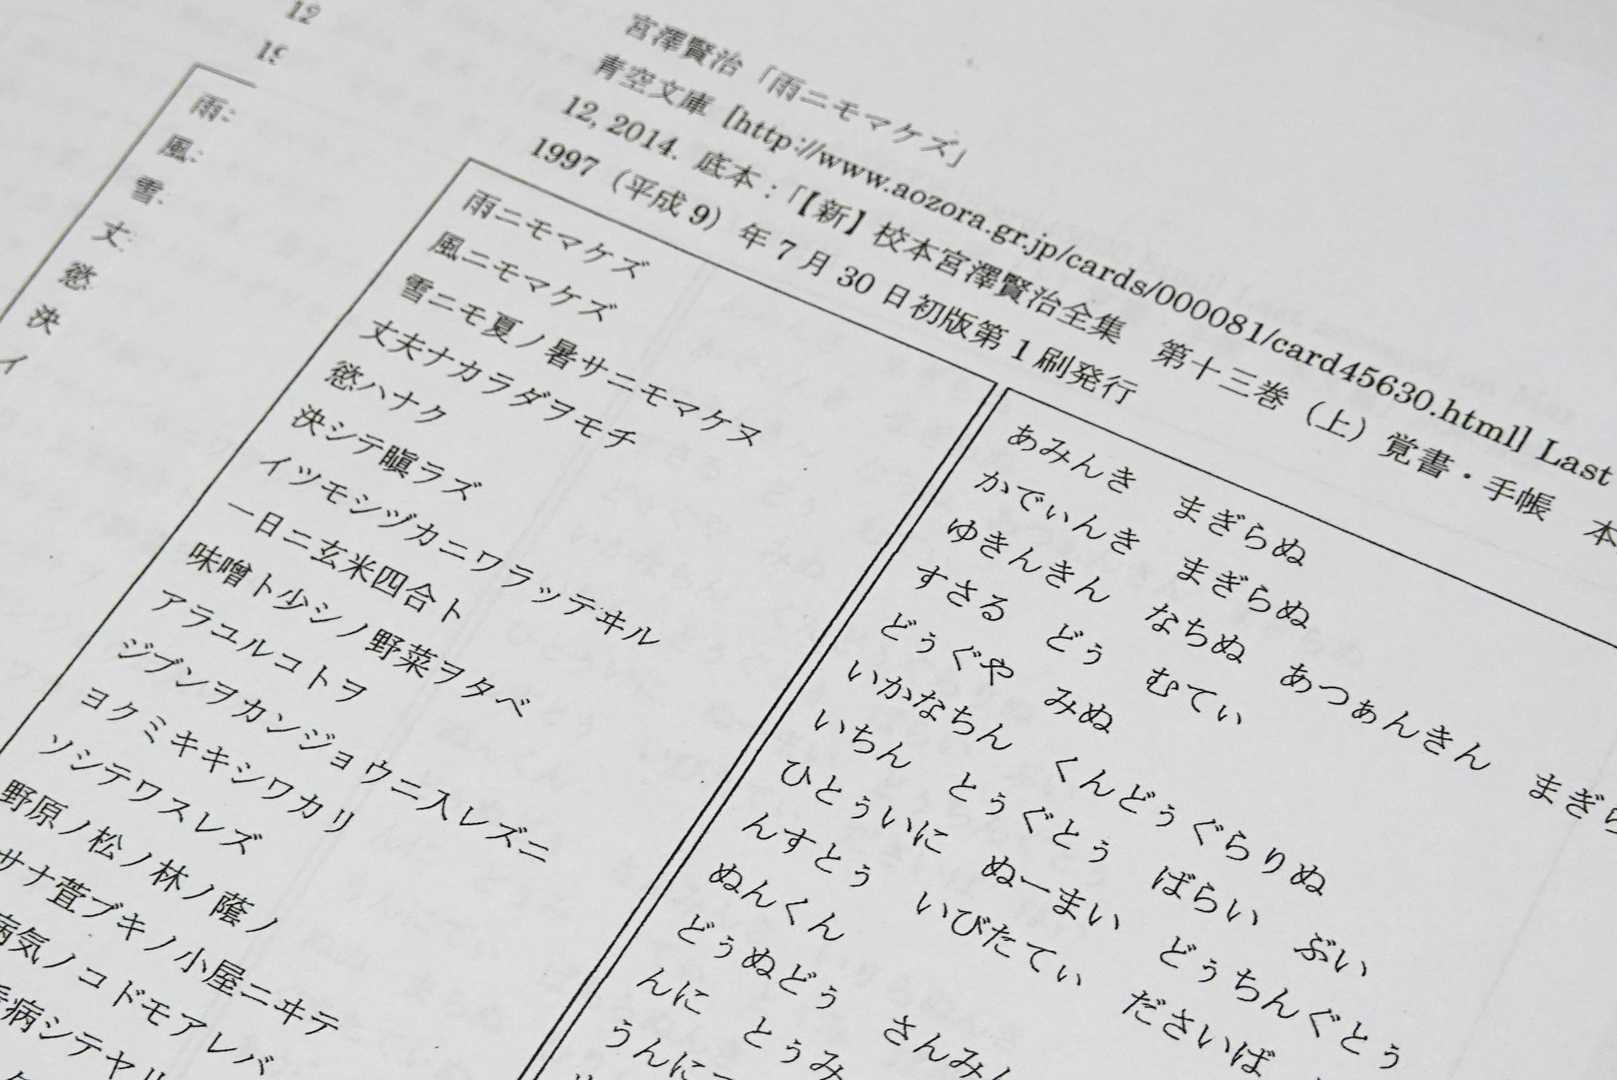 12
19
雨ニ
風ニ
雪
丈
慾
決
イ
宮澤賢治「雨ニモマケズ」
青空文庫 [http://www.aozora.gr.jp/cards/000081/card45630.html] Last
12, 2014. 底本：「【新】校本宮澤賢治全集　第十三巻（上）覚書・手帳　本
1997（平成9）年7月30日初版第1刷発行
雨ニモマケズ
風ニモマケズ
雪ニモ夏ノ暑サニモマケヌ
丈夫ナカラダヲモチ
慾ハナク
決シテ瞋ラズ
イツモシヅカニワラッテヰル
一日ニ玄米四合ト
味噌ト少シノ野菜ヲタベ
アラユルコトヲ
ジブンヲカンジョウニ入レズニ
ヨクミキキシワカリ
ソシテワスレズ
野原ノ松ノ林ノ蔭ノ
サナ萓ブキノ小屋ニヰテ
病気ノコドモアレバ
病シテヤル
あみんき　まぎらぬ
かでぃんき　まぎらぬ
ゆきんきん　なちぬ　あつぁんきん　まぎら
すさる　どぅ　むてぃ
どぅぐや　みぬ
いかなちん　くんどぅぐらりぬ
いちん　とぅぐとぅ　ばらい　ぶい
ひとぅいに　ぬーまい　どぅちんぐとぅ
んすとぅ　いびたてぃ　ださいば
ぬんくん
どぅぬどぅ　さんみん
んに　とぅみ
うんに